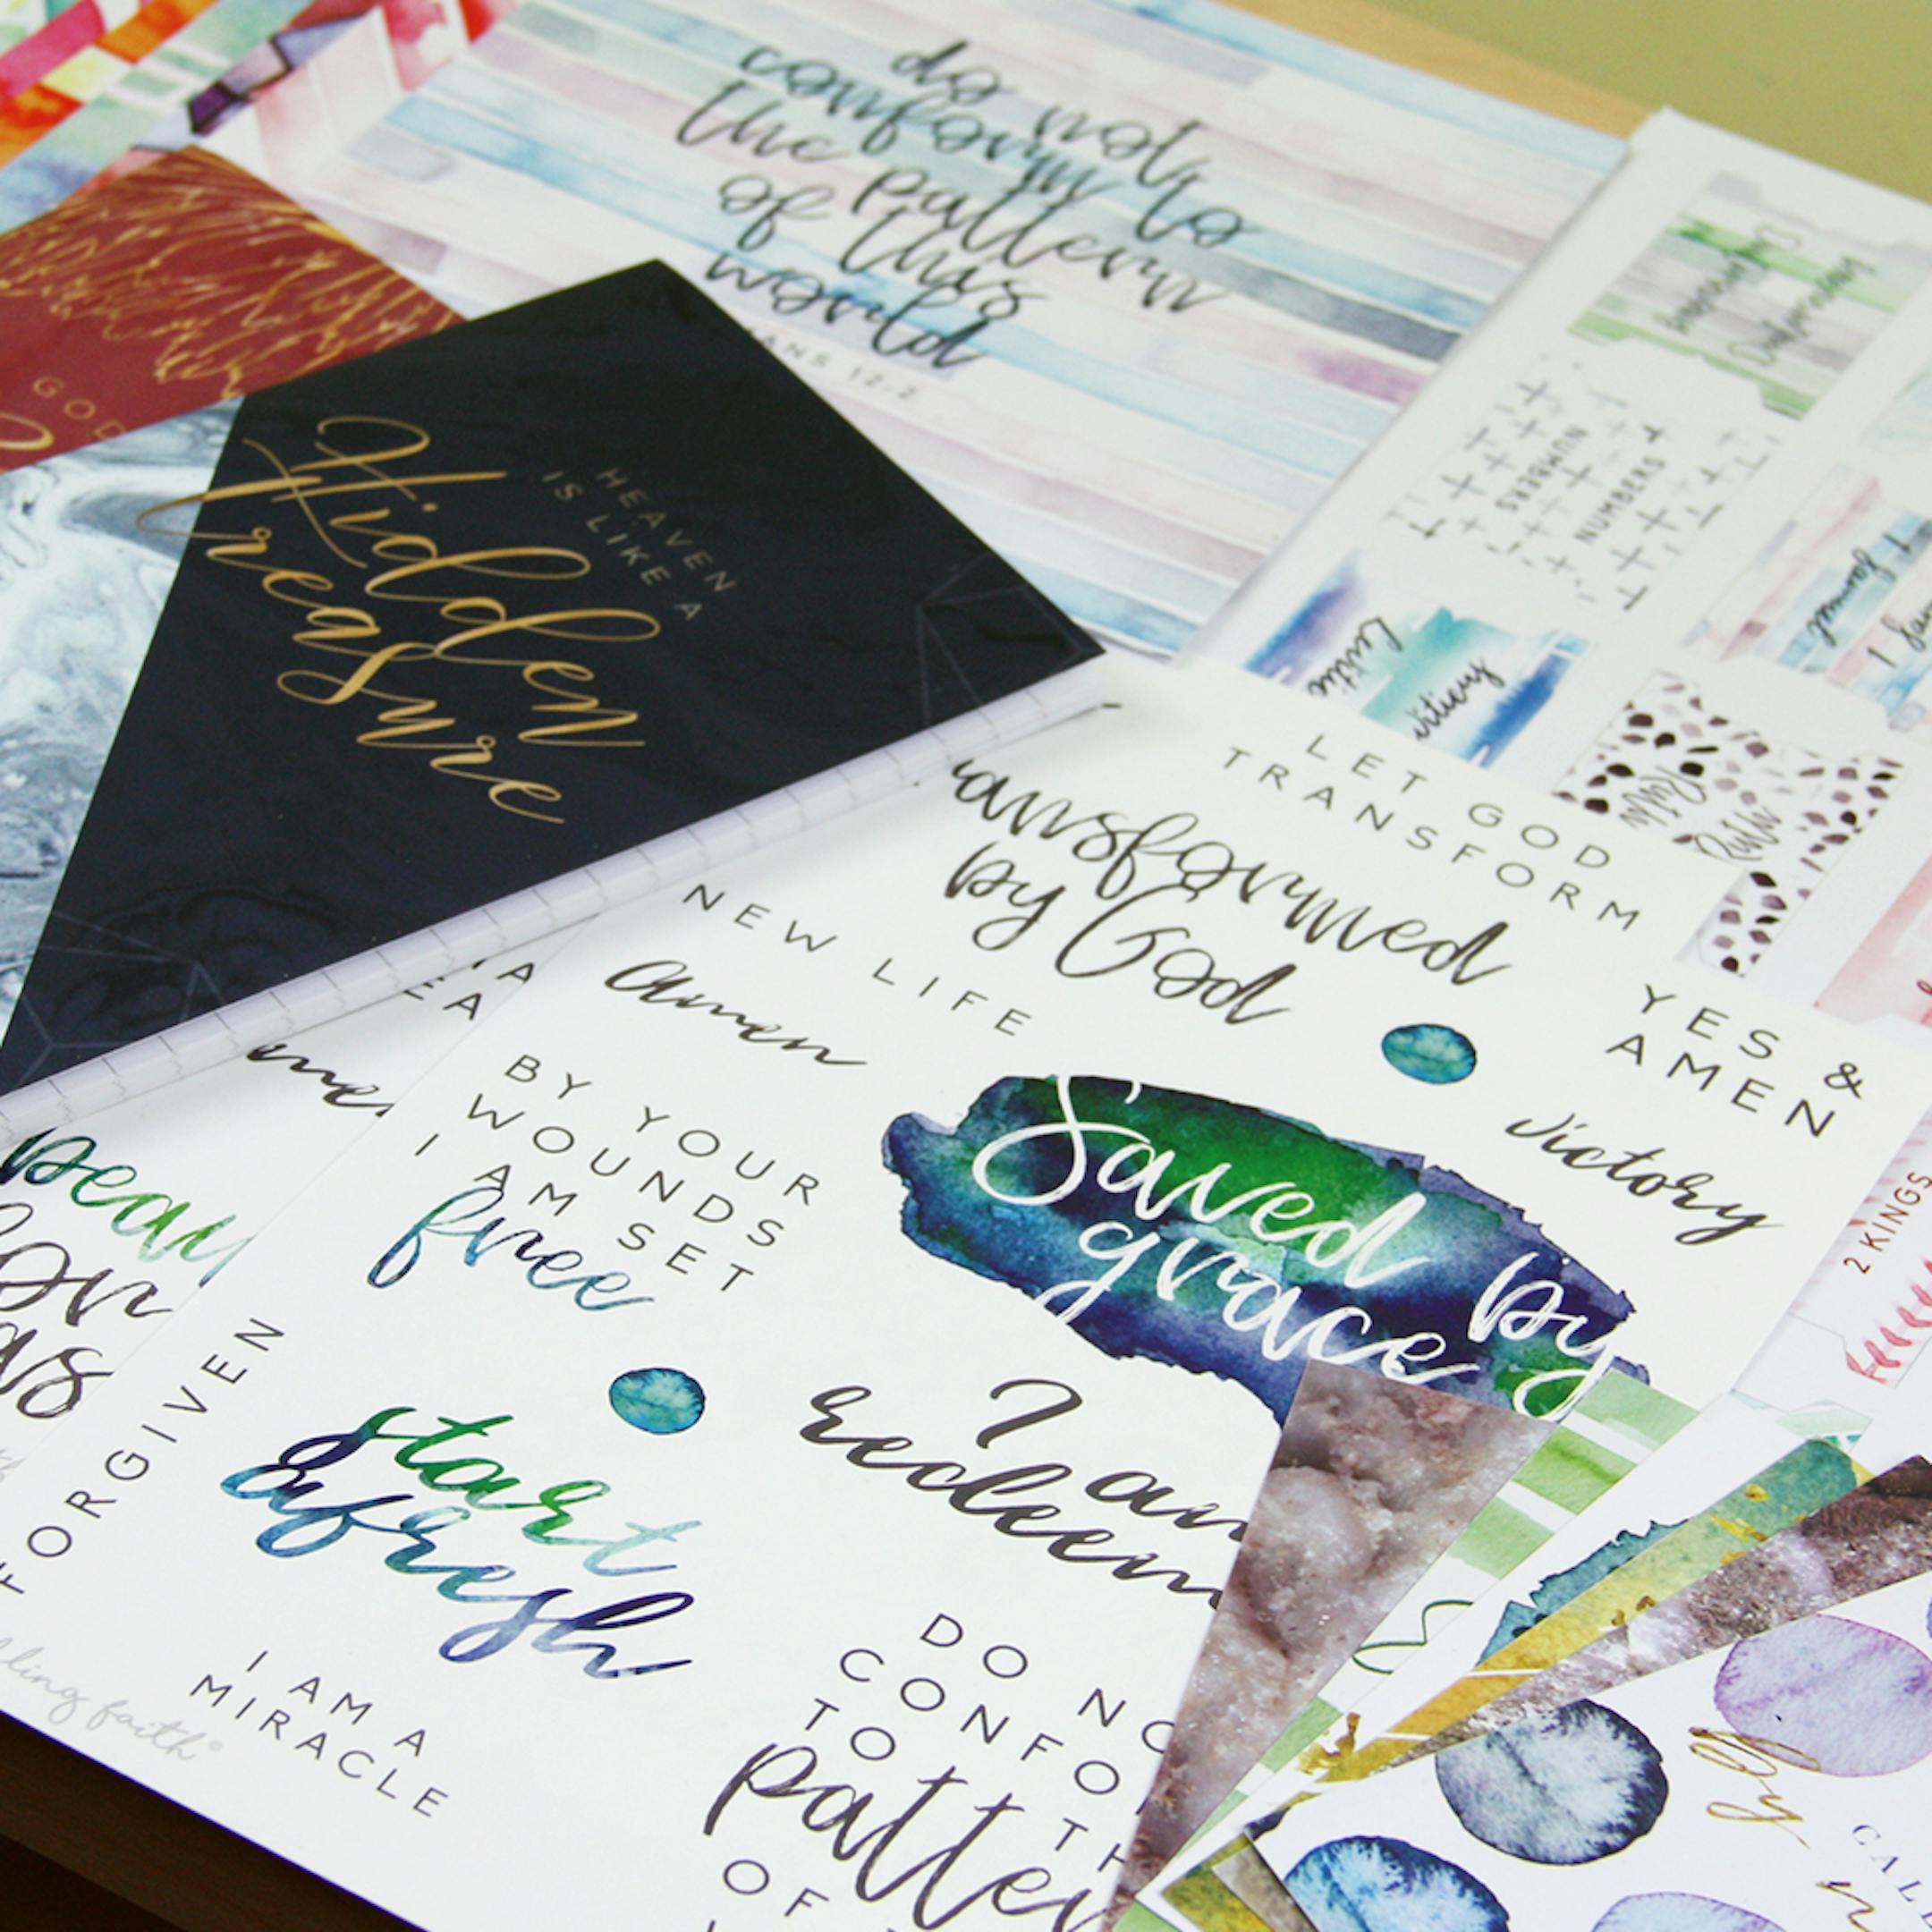 do not
conform to
the pattern
of this
world
12:2
GOD
HEAVEN
IS LIKE A
Hidden
Treasure
NUMBERS
NUMBERS
1 Samuel
Ruth
Ruth
LET GOD
TRANSFORM
transformed
by God
NEW LIFE
amen
YES &
AMEN
victory
BY YOUR
WOUNDS
I AM SET
free
Saved by
grace
2 KINGS
FORGIVEN
start
afresh
I am
redeem
I AM A
MIRACLE
DO NO
CONFO
TO TH
patte
OF
faith
by
CAL